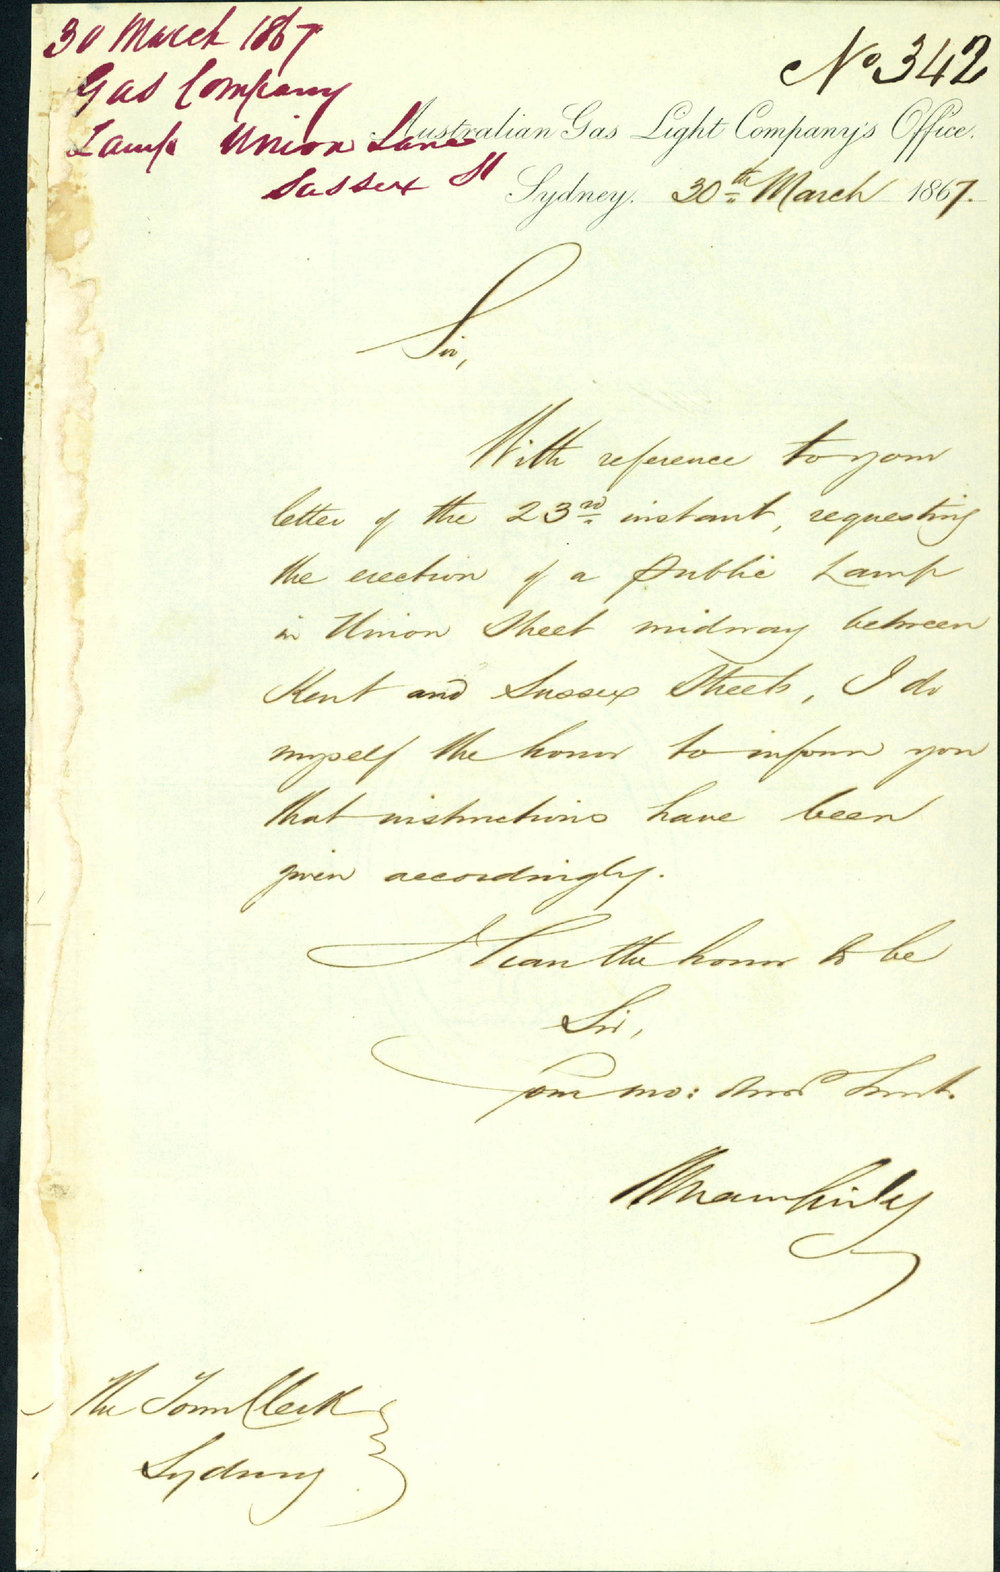 30 March 1867
Gas Company
Lamp Union Lane
Sussex St
No 342
Australian Gas Light Company's Office.
Sydney. 30th March 1867.
Sir,
With reference to your
letter of the 23rd instant, requesting
the erection of a Public Lamp
in Union Street midway between
Kent and Sussex Streets, I do
myself the honor to inform you
that instructions have been
given accordingly.
I have the honor to be
Sir,
Your mo: obed Servt.
The Town Clerk
Sydney